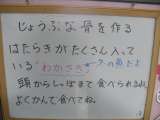 じょうぶな骨を作る
はたらきがたくさん入って
いる"わかさぎ"の魚だよ
頭からしっぽまで食べられるね
よくかんで食べてね。